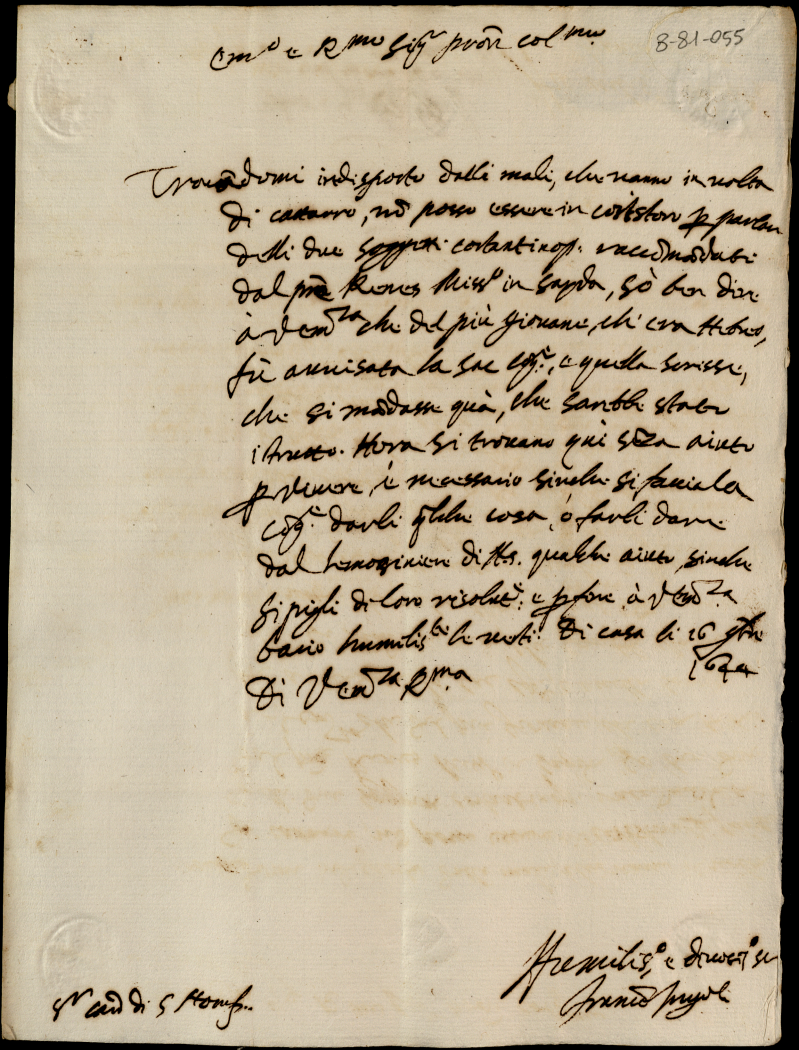 8-81-055
Em.º e R.mo Sig.r pron̄ col.mo
Trouādomi indisposto dalli mali, che vanno in volta
di cattarro, nō posso essere in per parlar
delli due soggetti costantinop. raccōmādati
dal prē Renes Miss.º in Sayda, sò ben dire
à V Em.za che del più giovane, ch'era Hebreo,
fù auuisata la Sac Cog.e, e quella scrisse,
che si mādasse quà, che sarebbe stato
istrutto. Hora si trouano quì sēza aiuto
per viuere, è necessario sinche si faccia la
Cog.e darli q̄lche cosa, ò farli dare
dal lemosiniere di N.S. qualche aiuto, sinche
si pigli di loro risolut.e; e per fine à V Em.za
bacio humiliss.te le vesti. Di casa li 16 9bre
1644
Di V Em.za R.ma
Humiliss.º, e diuotiss.º se
Franc.º Ingoli
S.r card di S Honof..